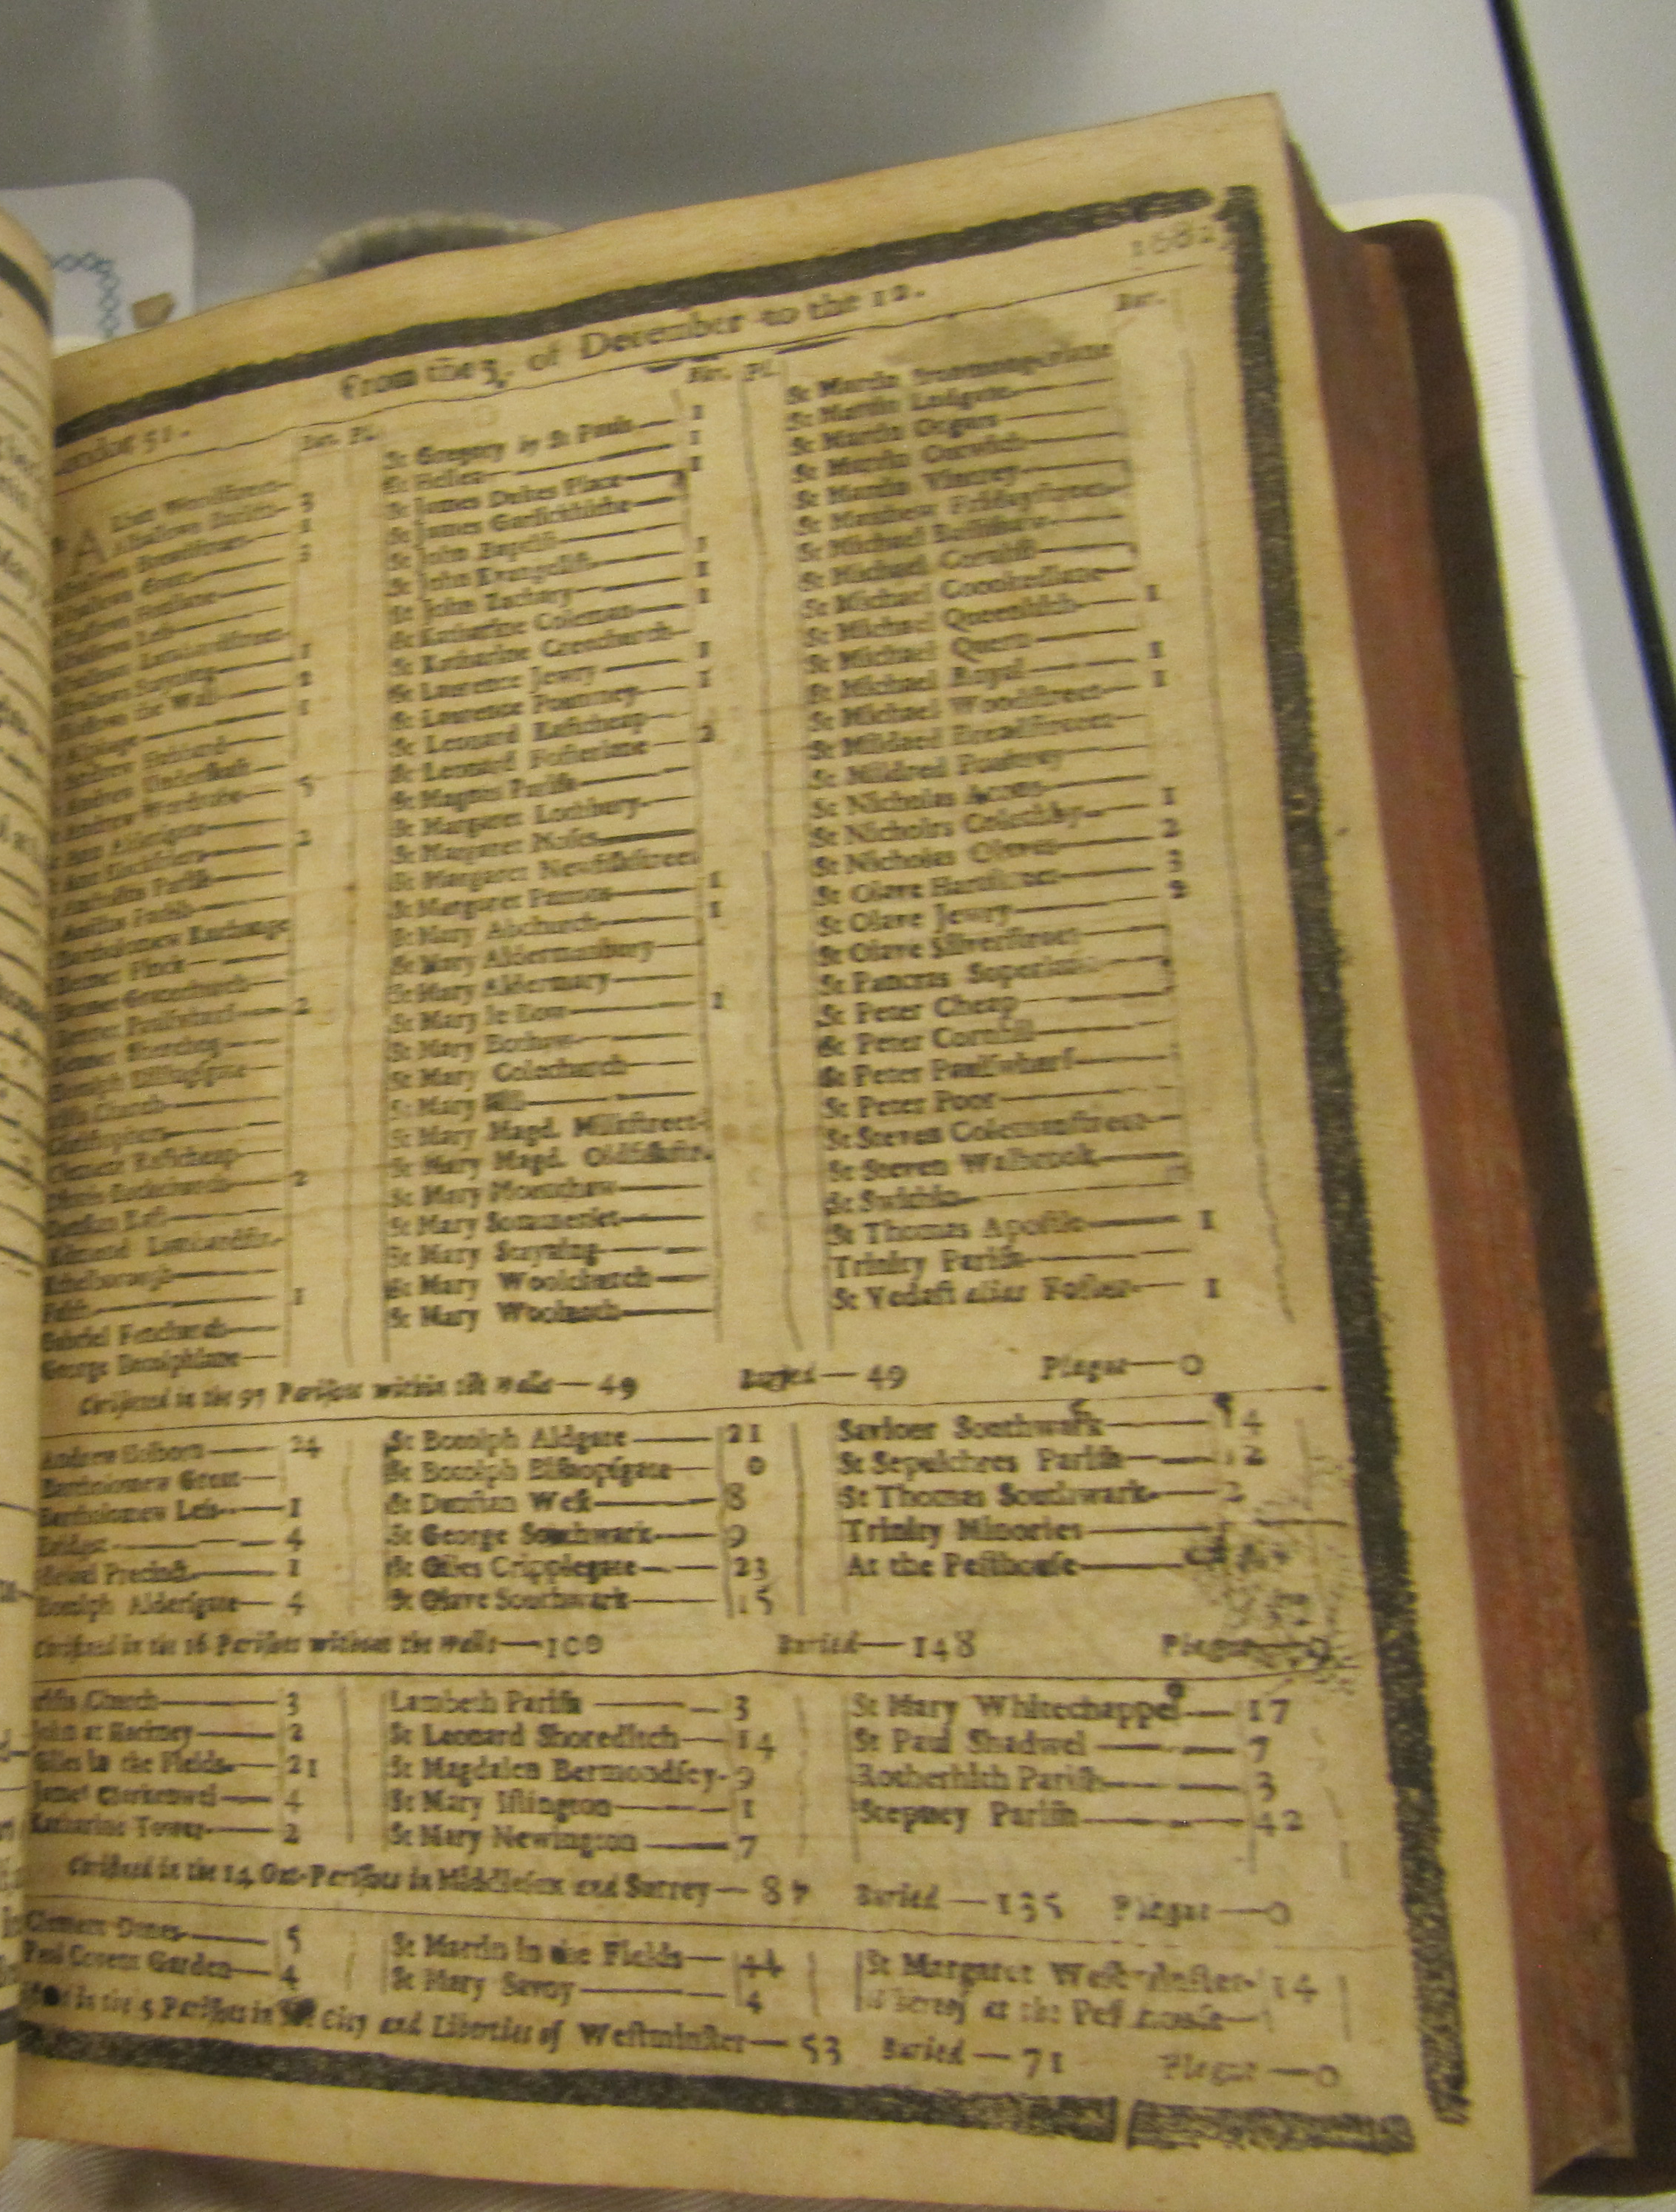 1682
From the 5, of December to the 12.
London 51.
Bur. Pl.
Alban Woodstreet
Alhallows Barkin 3
Alhallows Breadstreet 1
Alhallows Great 3
Alhallows Honilane
Alhallows Less
Alhallows Lumbardstreet
Alhallows Stayning 1
Alhallows the Wall 2
Alphage 1
Andrew Hubbard
Andrew Undershaft
Andrew Wardrobe 5
Ann Aldersgate
Ann Blackfriers 2
Antholins Parish
Austins Parish
Bartholomew Exchange
Bennet Finck
Bennet Gracechurch
Bennet Paulswharf 2
Bennet Sherehog
Botolph Billingsgate
Christs Church
Christophers
Clement Eastcheap
Dionis Backchurch 2
Dunstan East
Edmond Lumbardstr.
Ethelborough
Faith 1
Gabriel Fenchurch
George Botolphlane
Bur. Pl.
St Gregory by St Pauls 1
St Hellen 1
St James Dukes Place 1
St James Garlickhithe
St John Baptist
St John Evangelist 1
St John Zachary 1
St Katharine Coleman 1
St Katharine Creechurch
St Laurence Jewry 1
St Laurence Pountney 1
St Leonard Eastcheap
St Leonard Fosterlane 2
St Magnus Parish
St Margaret Lothbury
St Margaret Moses
St Margaret Newfishstreet
St Margaret Pattons 1
St Mary Abchurch 1
St Mary Aldermanbury
St Mary Aldermary
St Mary le Bow 1
St Mary Bothaw
St Mary Colechurch
St Mary Hill
St Mary Magd. Milkstreet
St Mary Magd. Oldfishstr.
St Mary Mounthaw
St Mary Sommerset
St Mary Stayning
St Mary Woolchurch
St Mary Woolnoth
Bur.
St Martin Iremongerlane
St Martin Ludgate
St Martin Organs
St Martin Outwich
St Martin Vintrey
St Matthew Fridaystreet
St Michael Bassishaw
St Michael Cornhil
St Michael Crookedlane
St Michael Queenhith 1
St Michael Quern
St Michael Royal 1
St Michael Woodstreet 1
St Mildred Breadstreet
St Mildred Poultrey
St Nicholas Acons
St Nicholas Coleabby 1
St Nicholas Olaves 2
St Olave Hartstreet 3
St Olave Jewry 2
St Olave Silverstreet
St Pancras Soperlane
St Peter Cheap
St Peter Cornhil
St Peter Paulswharf
St Peter Poor
St Steven Colemanstreet
St Steven Walbrook
St Swithin
St Thomas Apostle 1
Trinity Parish
St Vedast alias Foster 1
Christned in the 97 Parishes within the Walls—49 Buried—49 Plague—0
Andrew Holborn 24
Bartholomew Great
Bartholomew Less 1
Bridget 4
Bridewel Precinct 1
Botolph Aldersgate 4
St Botolph Aldgate 21
St Botolph Bishopsgate 0
St Dunstan West 8
St George Southwark 9
St Giles Cripplegate 23
St Olave Southwark 15
Saviour Southwark 14
St Sepulchres Parish 12
St Thomas Southwark 2
Trinity Minories
At the Pesthouse
Christned in the 16 Parishes without the Walls—100 Buried—148 Plague—0
Christs Church 3
John at Hackney 2
Giles in the Fields 21
James Clerkenwel 4
Katharine Tower 2
Lambeth Parish 3
St Leonard Shoreditch 14
St Magdalen Bermondsey 9
St Mary Islington 1
St Mary Newington 7
St Mary Whitechappel 17
St Paul Shadwel 7
Rotherhith Parish 3
Stepney Parish 42
Christned in the 14 Out-Parishes in Middlesex and Surrey—87 Buried—135 Plague—0
Clement Danes 5
Paul Covent Garden 4
St Martin in the Fields 44
St Mary Savoy 4
St Margaret Westminster 14
whereof at the Pesthouse
Christned in the 5 Parishes in the City and Liberties of Westminster—53 Buried—71 Plague—0